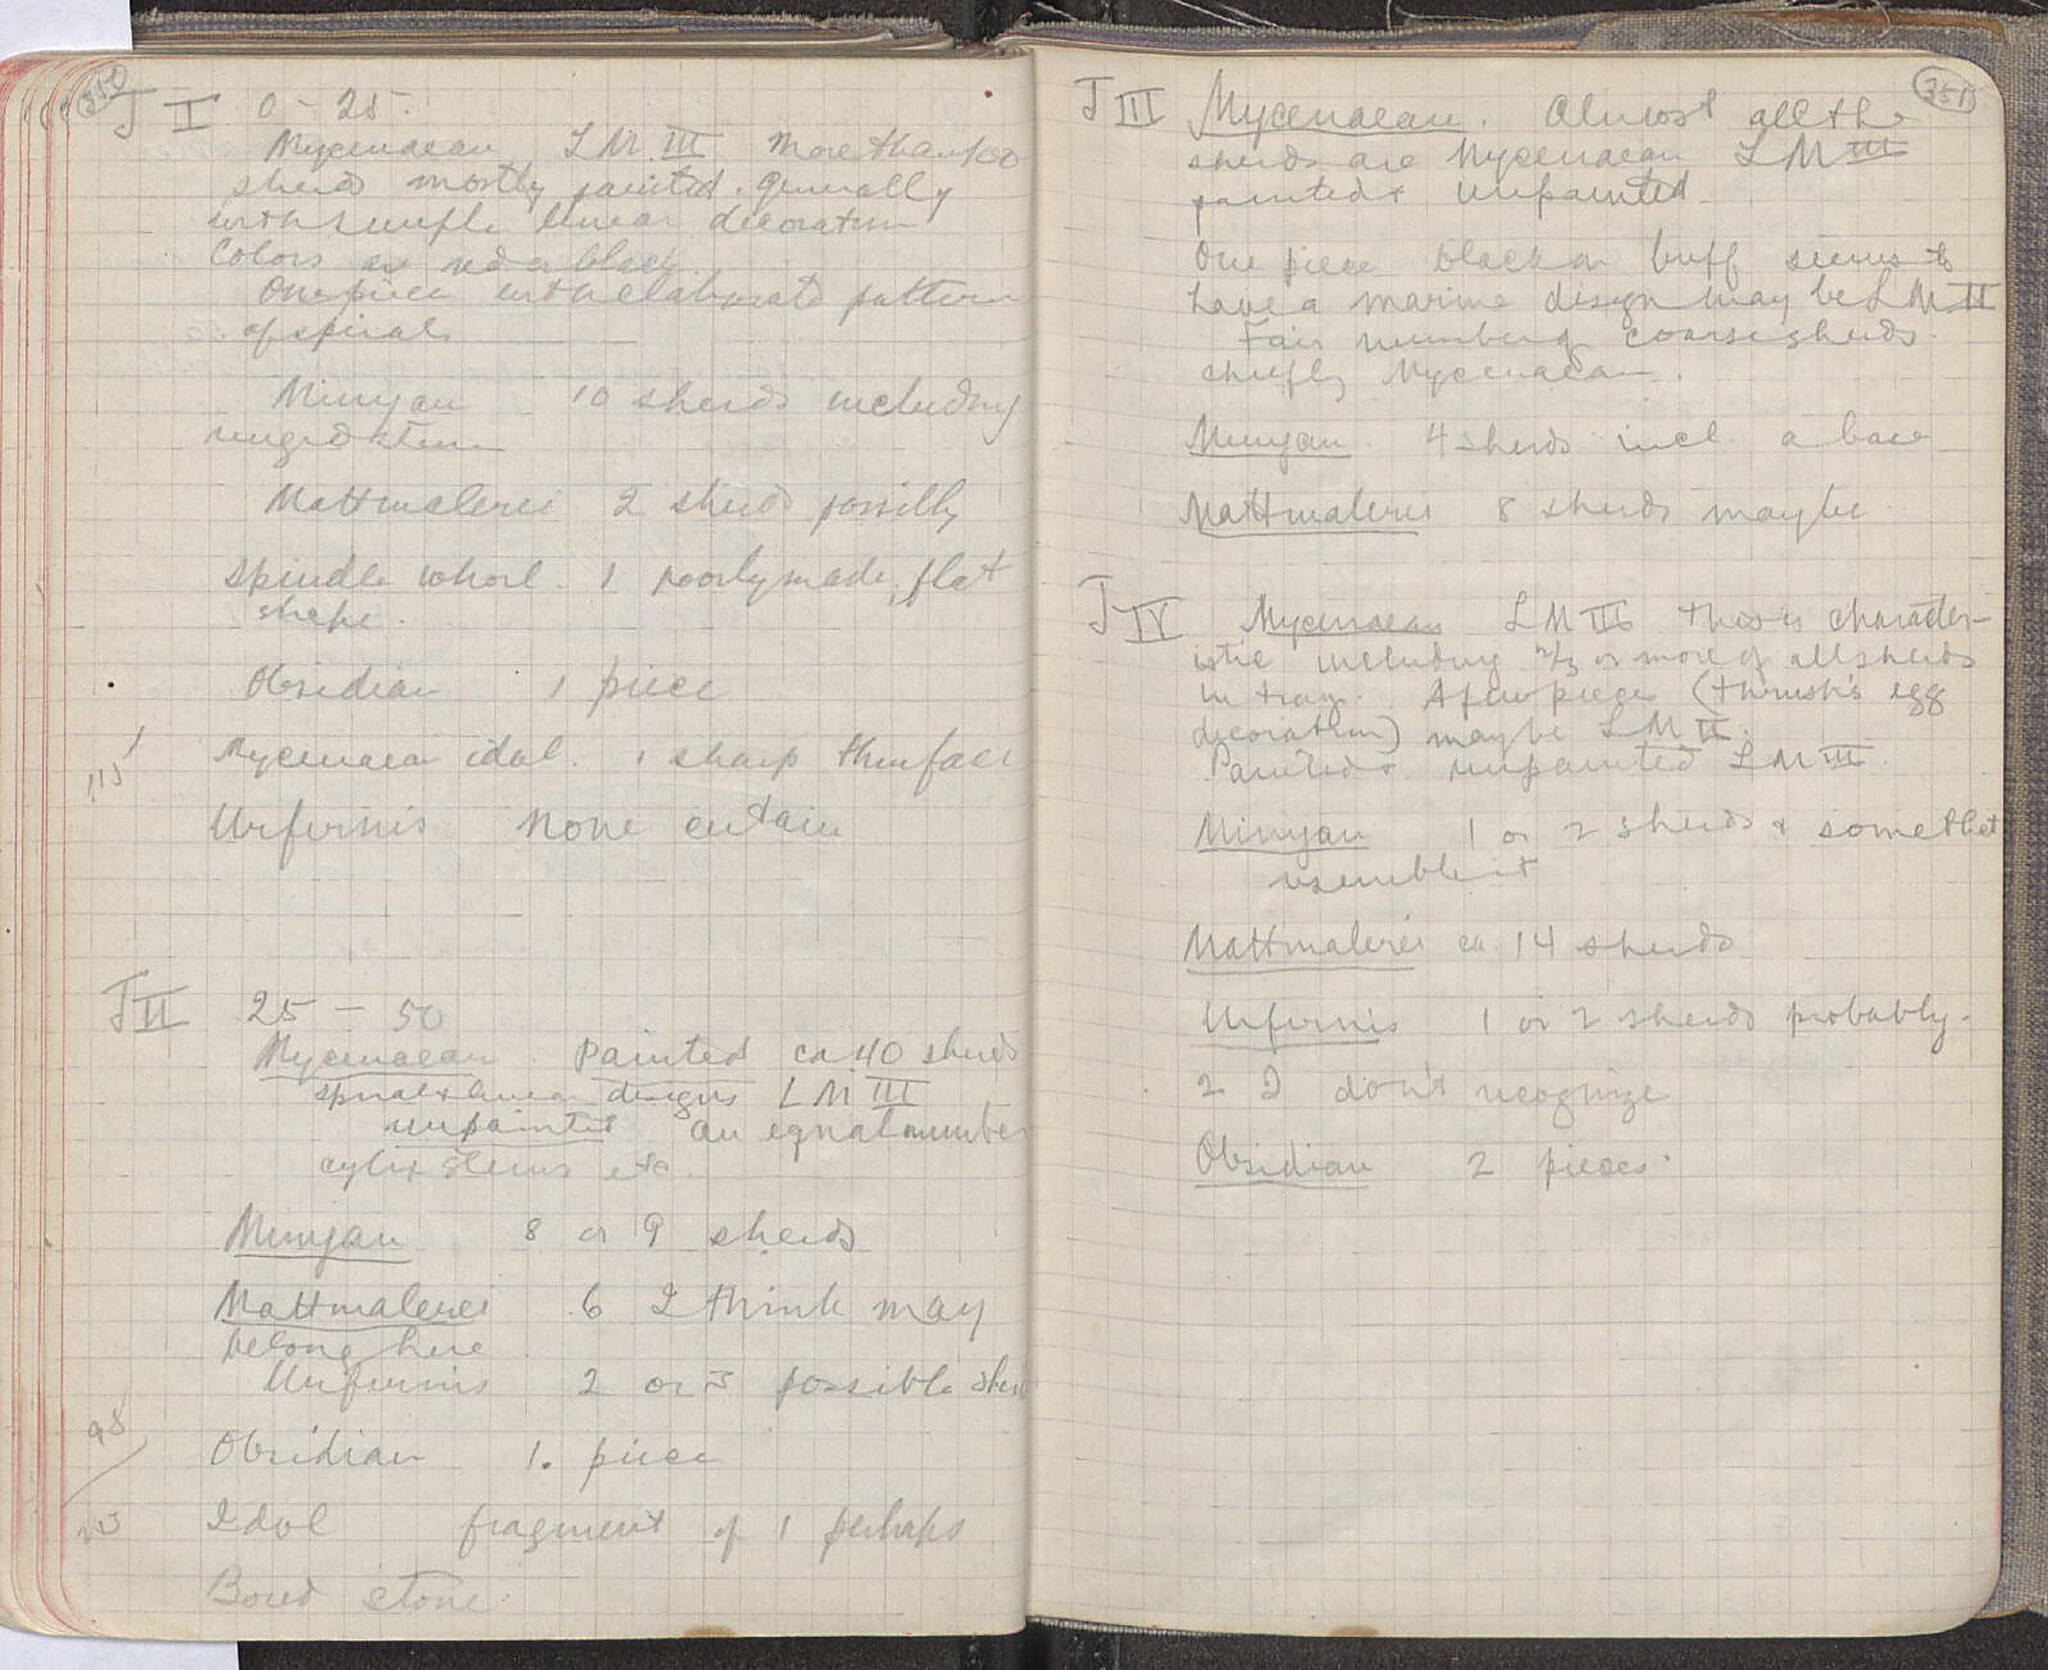 350
J I 0 - 25.
Mycenaean LM III More than 100
sherds mostly painted. generally
with simple linear decoration
Colors are red or black.
One piece with elaborate pattern
of spirals
Minyan 10 sherds including
ringed stem
Mattmalerei 2 sherds possibly
Spindle whorl. 1 poorly made, flat
shape.
Obsidian 1 piece
Mycenaean idol. 1 sharp thin face
Urfirnis None certain
J II 25 - 50
Mycenaean Painted ca 40 sherds
spiral & linear designs LM III
unpainted an equal number
cylix stems etc.
Minyan 8 or 9 sherds
Mattmalerei 6 I think may
belong here
Urfirnis 2 or 3 possible sherds
Obsidian 1. piece
Idol fragment of 1 perhaps
Bored stone.
351
J III Mycenaean. Almost all the
sherds are Mycenaean LM III
painted & unpainted.
One piece black on buff seems to
have a marine design may be LM II
Fair number of coarse sherds.
chiefly Mycenaean.
Minyan. 4 sherds incl. a base
Mattmalerei 8 sherds maybe.
J IV Mycenaean LM III This is character-
istic including 2/3 or more of all sherds
in tray. A few pieces (thrush's egg
decoration) may be LM II.
Painted & unpainted LM III.
Minyan 1 or 2 sherds & some that
resemble it
Mattmalerei ca. 14 sherds
Urfirnis 1 or 2 sherds probably.
2 I don't recognize
Obsidian 2 pieces.